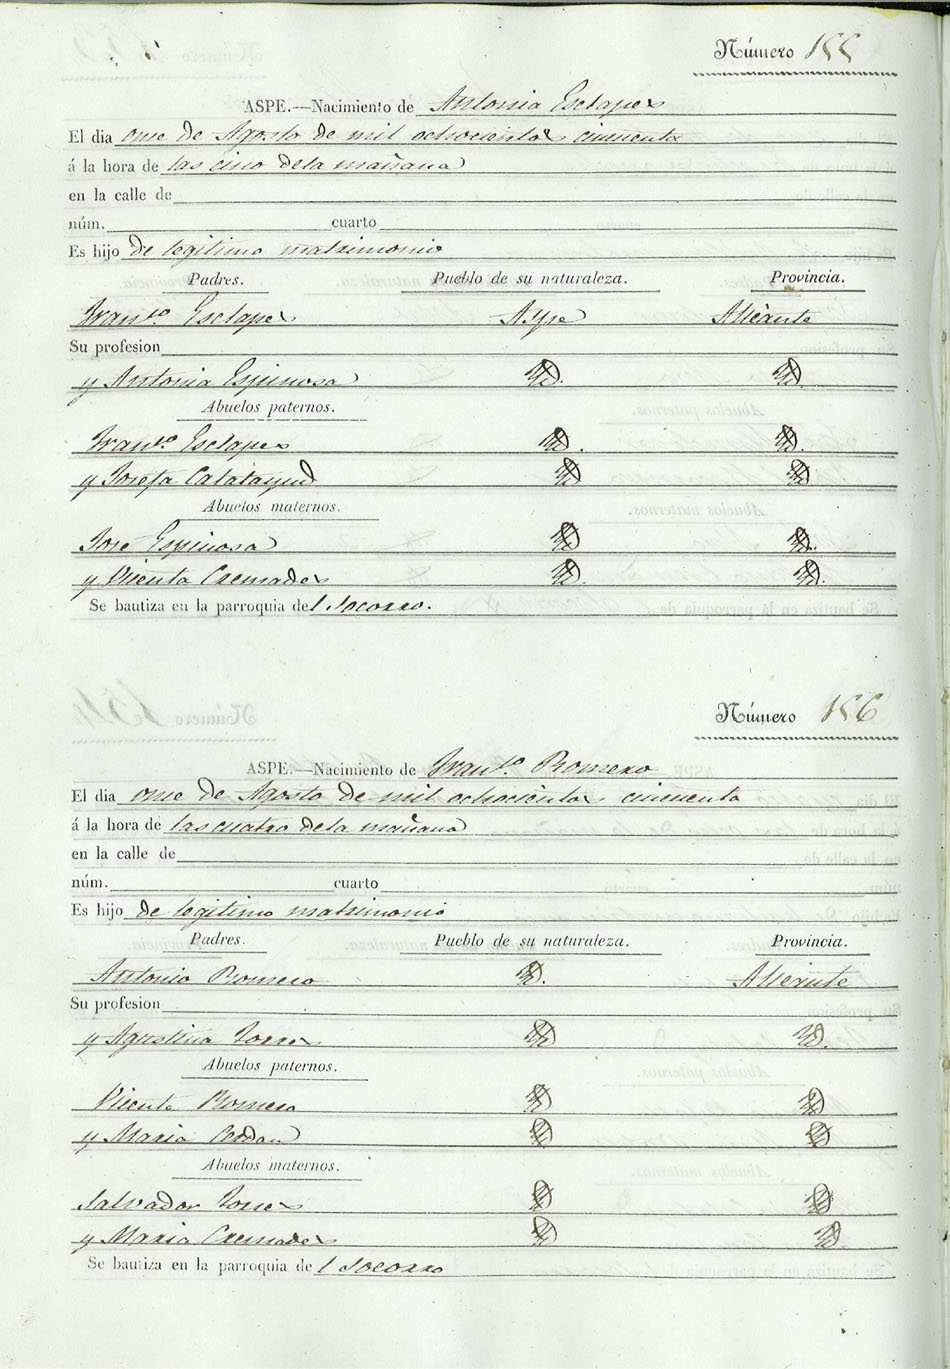 Número 155
ASPE.—Nacimiento de Antonia Esclapes
El dia once de Agosto de mil ochocientos cincuenta
á la hora de las cinco dela mañana
en la calle de
núm. cuarto
Es hijo de legitimo matrimonio
Padres. Pueblo de su naturaleza. Provincia.
Franco. Esclapes Aspe Alicante
Su profesion
y Antonia Espinosa Id. Id.
Abuelos paternos.
Franco. Esclapes Id. Id.
y Josefa Calatayud Id Id
Abuelos maternos.
Jose Espinosa Id Id.
y Vicenta Cremades Id. Id.
Se bautiza en la parroquia del Socorro.
Número 156
ASPE.—Nacimiento de Franco. Romero
El dia once de Agosto de mil ochocientos cincuenta
á la hora de las cuatro dela mañana
en la calle de
núm. cuarto
Es hijo de legitimo matrimonio
Padres. Pueblo de su naturaleza. Provincia.
Antonio Romero Id. Alicante
Su profesion
y Agustina Torres Id Id.
Abuelos paternos.
Vicente Romero Id Id
y Maria Cerdan Id Id
Abuelos maternos.
Salvador Torres Id Id
y Maria Cremades Id Id
Se bautiza en la parroquia del Socorro